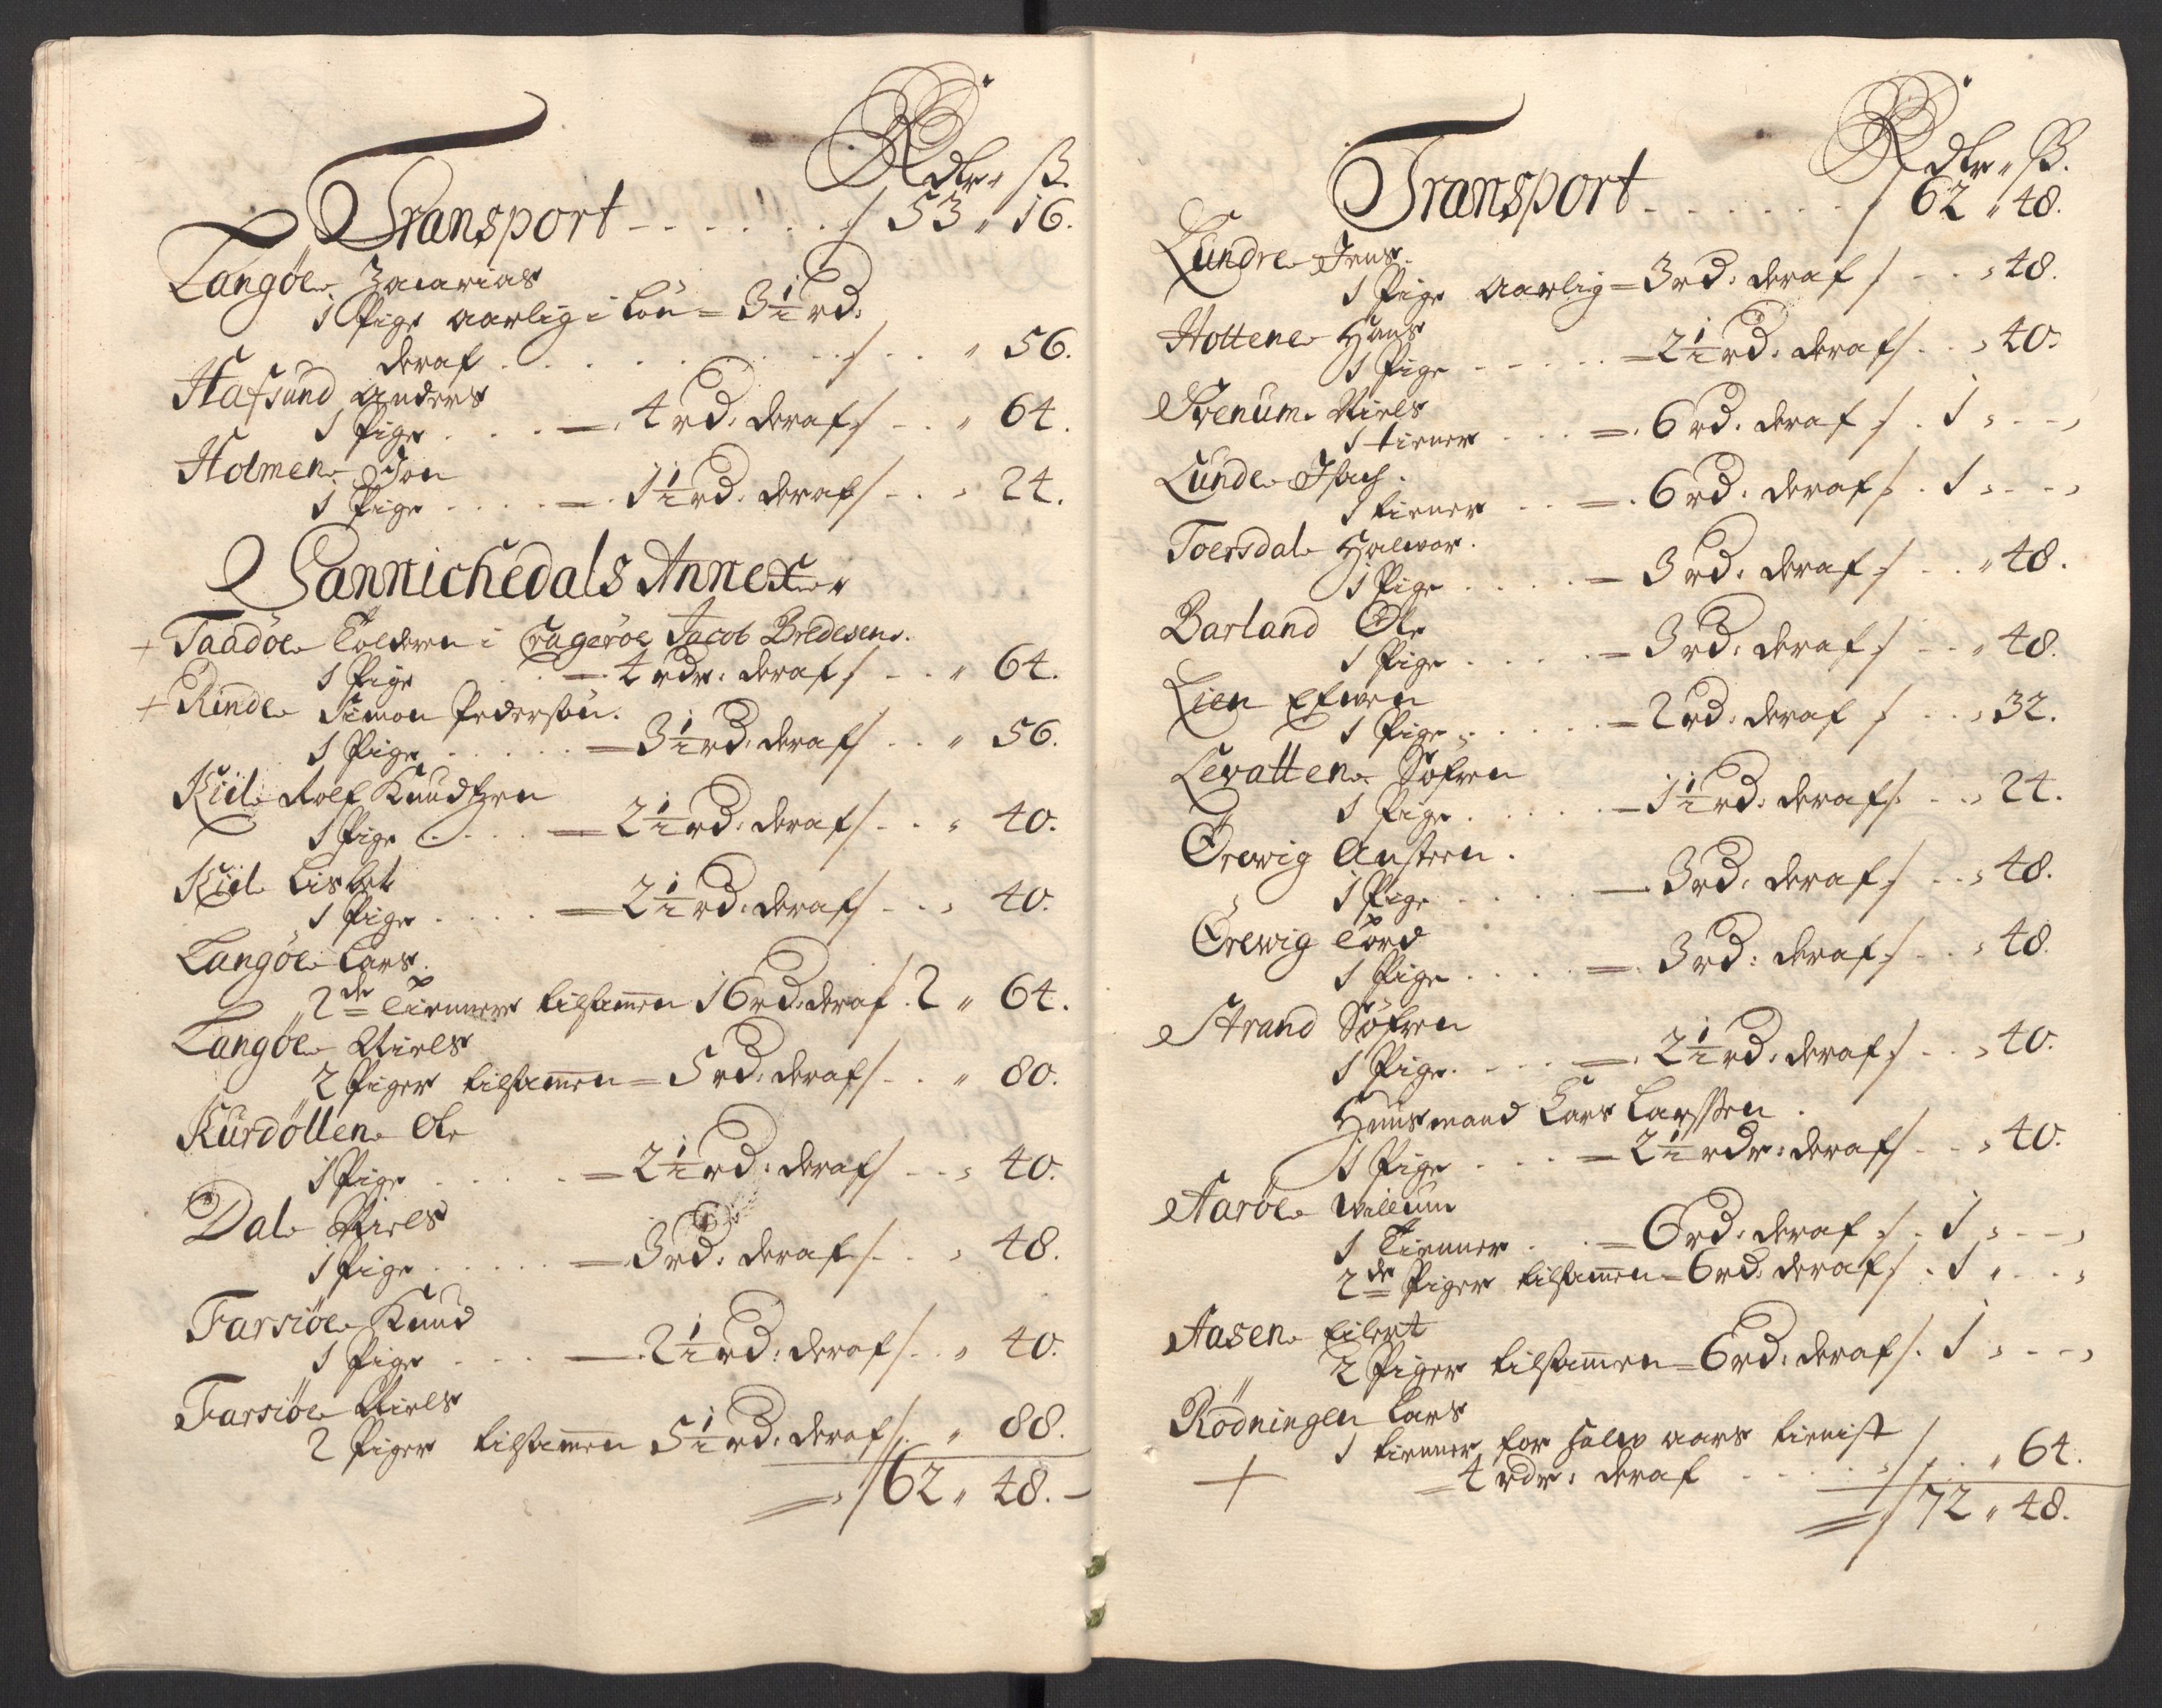 Rdlr " ß.
Transport - - - - - - / 53 " 16.
Langøe Zacarias
1 Pige aarlig i Løn = 3½ rd:
deraf . . . . . . . / . . " 56.
Hafsund Anders
1 Pige . . . = 4 rd: deraf / - . " 64.
Holmen Jon
1 Pige . . . . = 1½ rd: deraf / - . , 24.
Sannichedals Annex
+ Taadøe Tolderen i Cragerøe Jacob Bredesen.
1 Pige . . = 4 rdr: deraf / - . " 64.
+ Rinde Simon Pedersøn.
1 Pige . . . . . = 3½ rd: deraf / . . " 56.
Kiil Rolf Knudtzen
1 Pige . . . . = 2½ rd: deraf / - . , 40.
Kiil Lisbet
1 Pige . . . . = 2½ rd: deraf / - . , 40.
Langøe Lars.
2de Tienner tilsammen 16 rd: deraf . 2 " 64.
Langøe Niels
2 Piger tilsammen = 5 rd: deraf / - . " 80.
Kurdøllen Ole
1 Pige . . . . . = 2½ rd: deraf / - - , 40.
Dal Niels
1 Pige . . . . . = 3 rd: deraf / . . , 48.
Farsiøe Knud
1 Pige . . . . = 2½ rd: deraf / . . , 40.
Farsiøe Niels
2 Piger tilsammen 5½ rd: deraf / . " 88.
= / 62 " 48. -
Rdlr " ß.
Transport - . . . . . . / 62 " 48.
Lundre Jens.
1 Pige aarlig = 3 rd: deraf / - . , 48.
Hottene Hans
1 Pige - - - . . = 2½ rd: deraf / . . , 40.
Stenum Niels
1 tiener . . . = 6 rd. deraf / . 1 , - - ,
Lunde Isach.
1 tiener . . = 6 rd. deraf / . 1 , - - ,
Toersdal Halwor.
1 Pige . . . . = 3 rd. deraf / . . " 48.
Barland Ole
1 Pige . . . . . = 3 rd: deraf / - - " 48.
Lien Efwen
1 Pige . . . . . = 2 rd: deraf / . . , 32.
Lewatten Søfren
1 Pige . . . . . = 1½ rd: deraf / . . , 24.
Ørewig Austeen.
1 Pige . . . . . = 3 rd: deraf / . . , 48.
Ørewig Tord
1 Pige . . . . = 3 rd: deraf / . . , 48.
Strand Søfren
1 Pige . . . . = 2½ rd: deraf / . . , 40.
Huusmand Lars Larssen.
1 Pige . . . = 2½ rdr: deraf / - - , 40.
Aarøe Willum
1 Tienner . . = 6 rd: deraf / . 1 , - - ,
2de Piger tilsammen = 6 rd: deraf / . 1 , . . ,
Aasen Eilert
2 Piger tilsammen = 6 rd: deraf / . 1 , - - ,
Rødningen Lars
1 tienner for halw aars tienist
+ = 4 rdr: deraf . . . . / . . " 64.
= / 72 " 48.